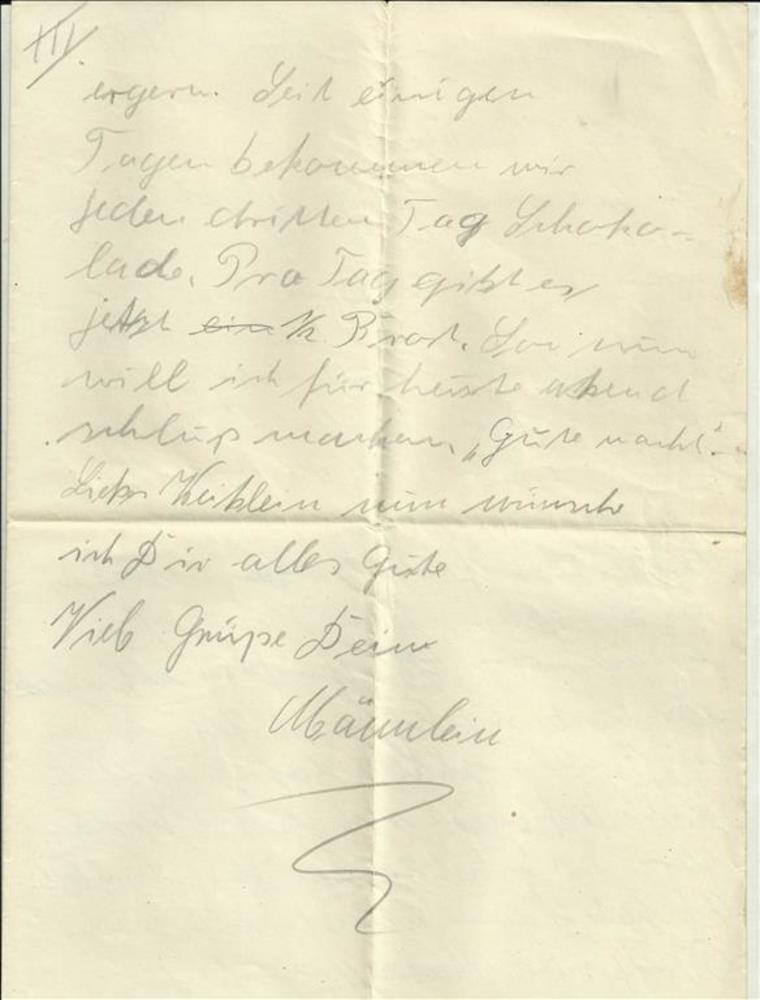 III.
ergern. Seit einigen
Tagen bekommen wir
jeden dritten Tag Schoko-
lade. Pro Tag gibt es
jetzt ein ½ Brot. So nun
will ich für heute abend
schluß machen, „Gute nacht".
Liebes Weiblein nun wünsche
ich Dir alles Gute
Viele Grüße Dein
Männlein